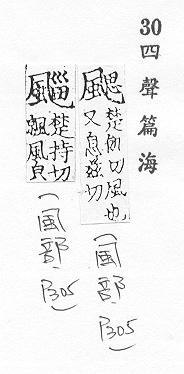 30 四聲篇海
颸
切風也
又息茲切
(風部 P305)
楚持切
風皃
(風部 P305)